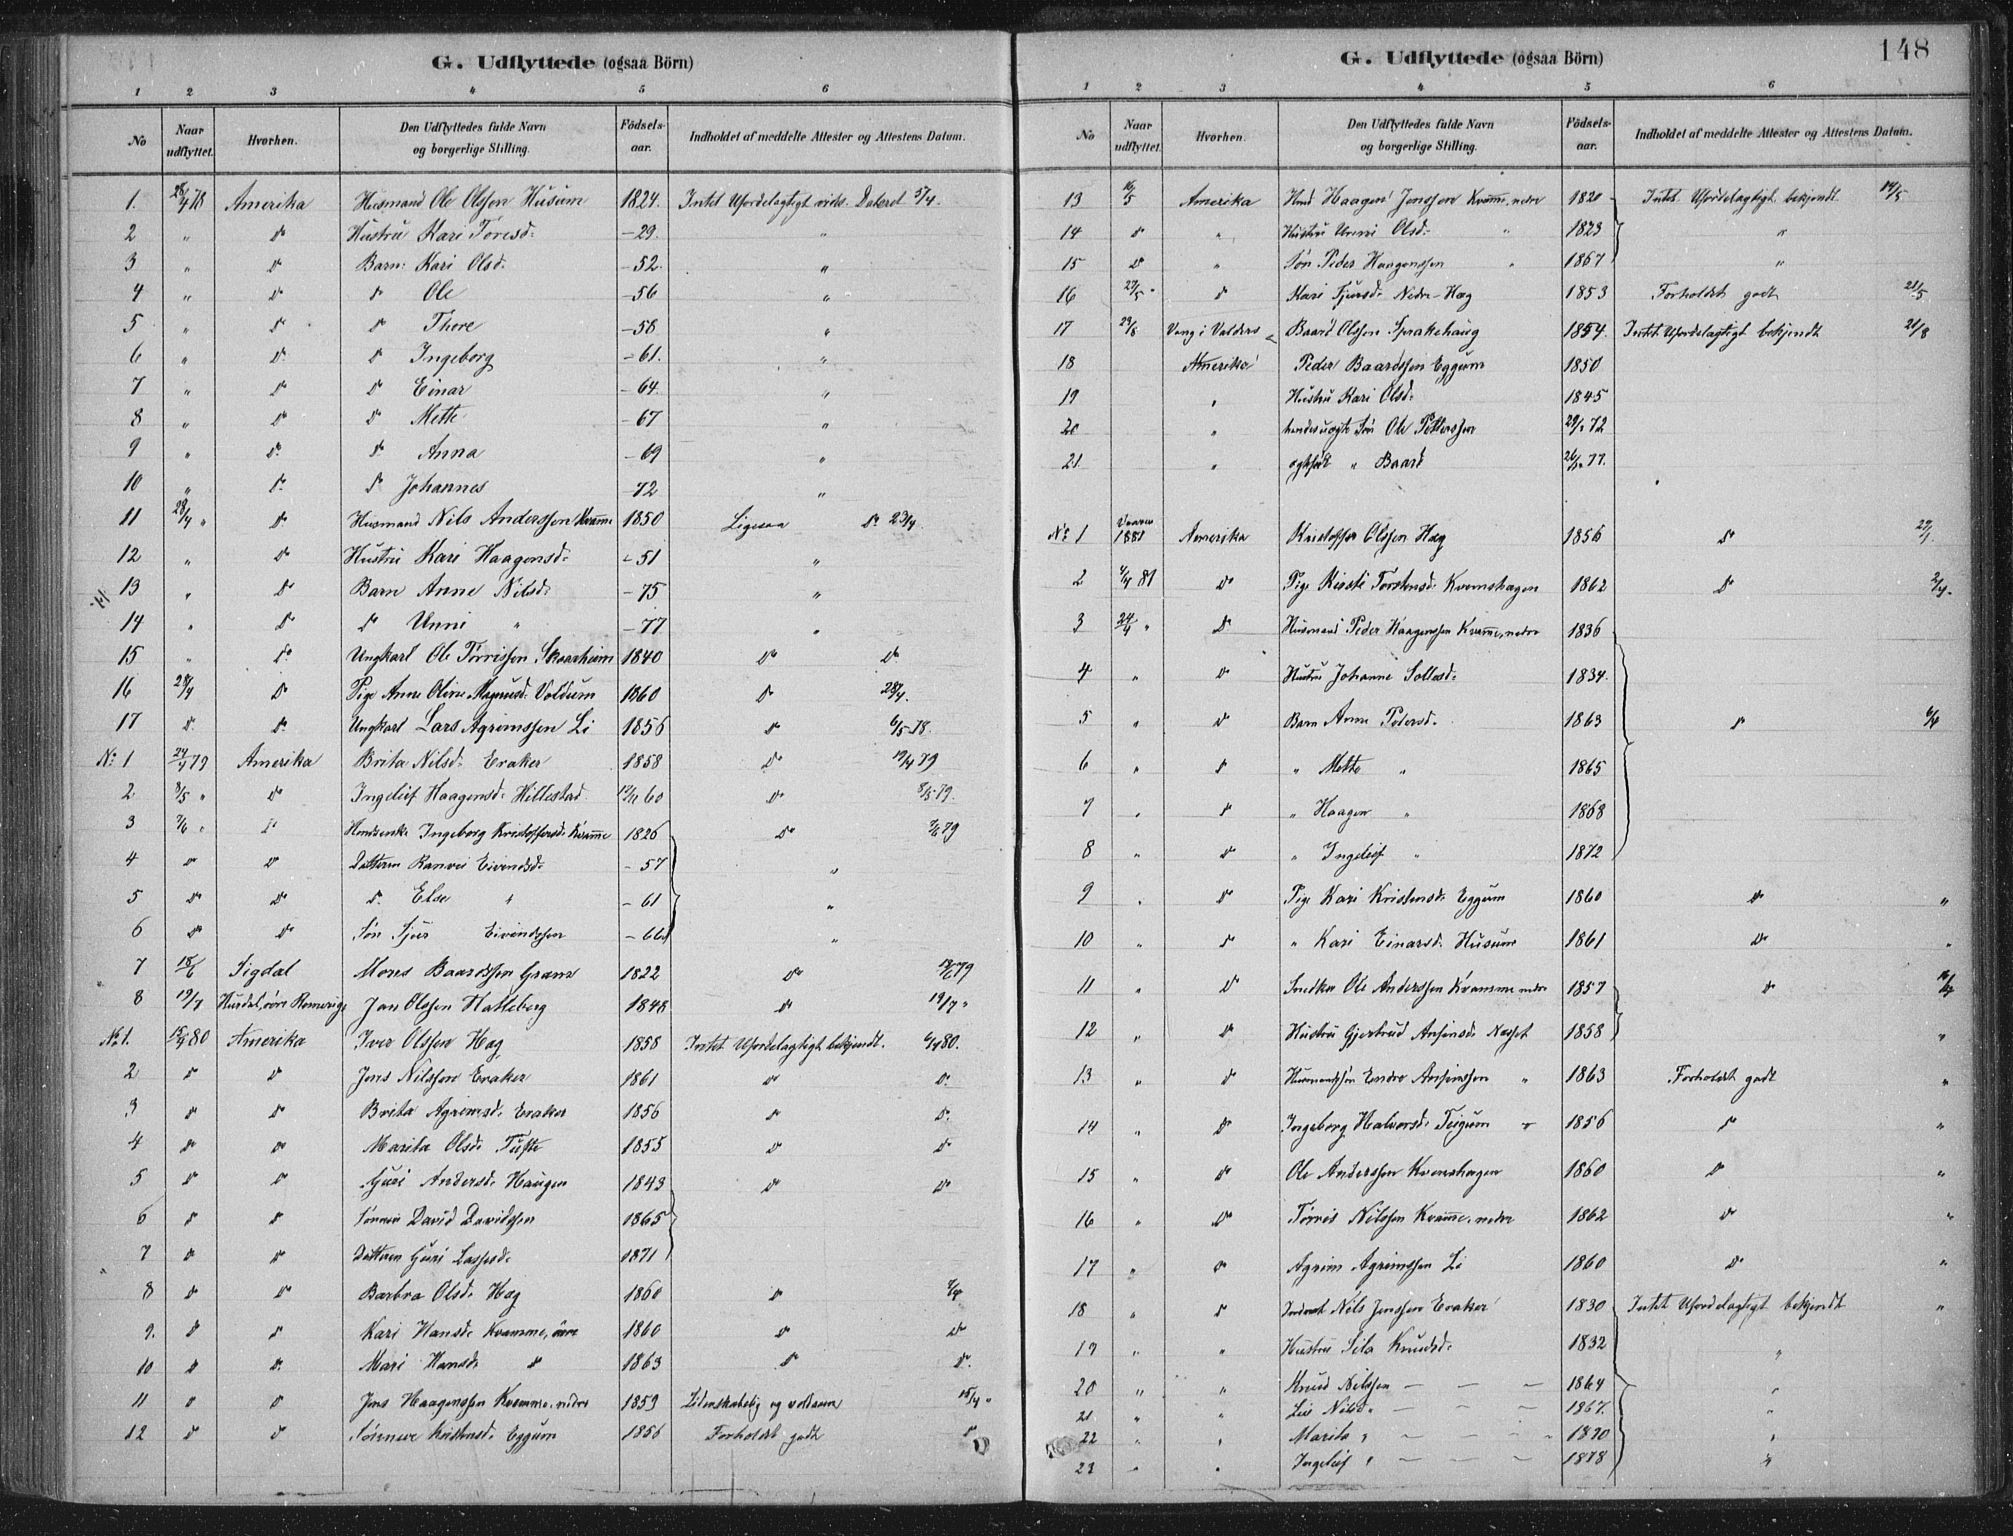 G. Udflyttede (ogsaa Börn)
1 2 3 4 5 6
No Naar udflyttet. Hvorhen. Den Udflyttedes fulde Navn og borgerlige Stilling. Födsels-aar. Indholdet af meddelte Attester og Attestens Datum.
1. 28/4 78 Amerika Husmand Ole Olssen Husum 1824. Intet Ufordelagtigt vides. Dateret 5/4.
2 " do Hustru Kari Toresd. -29. "
3 " do Barn: Kari Olsd. -52. "
4 " do do Ole -56 "
5 " do do Thore -58 "
6 " do do Ingeborg -61. "
7 " do do Einar -64. "
8 " do do Mette -67 "
9 " do do Anna -69 "
10 " do do Johannes -72 "
11 28/4 " do Husmand Nils Anderssen Kvamme 1850 Ligesaa do 23/4.
12 " do Hustru Kari Haagensd. -51 "
13 " do Barn Anne Nilsd. -75 "
14 " do do Unni " -77 "
15 " do Ungkarl Ole Torrissen Skaarheim 1840 do do
16 28/4 do Pige Anne Oline Magnusd. Voldum 1860 do 28/4.
17 do do Ungkarl Lars Agrimssen Li 1856 do 6/5 78.
No 1 24/4 79 Amerika Brita Nilsd. Eraker 1858 do 19/4 79
2 8/5 " do Ingeleif Haagensd. Hillestad 12/11 60 do 8/5 79.
3 7/6 " do Ingeborg Kristoffersd. Kvamme 1826 do 7/6 79
4 do do Datteren Ranvei Eivendsd. -57 "
5 do do do Else " -61 "
6 do do Søn Sjur Eivindssen -66 "
7 18/6 Sigdal Mons Baardssen Gram 1822 do 18/6 79
8 19/7 Hurdal, övre Romerige Jan Olssen Hatleberg 1848 do 19/7 "
No 1. 15/4 80 Amerika Iver Olssen Hæg 1858 Intet Ufordelagtigt bekjendt. 6/4 80.
2 do do Jens Nilssen Eraker 1861 do do
3 do do Brita Agrimsd. Eraker 1856 do do
4 do do Marita Olsd. Tufte 1855 do do
5 do do Guri Andersd. Haugen 1843 do do
6 do do Sønnen David Davidssen 1865
7 do do Datteren Guri Lassesd. 1871
8 do do Barbra Olsd. Hæg 1860 do 7/4
9. do do Kari Hansd. Kvamme, övre 1860 do do
10 do do Mari Hansd. do 1863 do do
11 do do Jens Haagenssen Kvamme, nedre 1859 Lidenskabelig og voldsom 15/4 "
12 do do Kristensd. Eggum 1856 Forholdet godt do
148
G. Udflyttede (ogsaa Börn)
1 2 3 4 5 6
No Naar udflyttet. Hvorhen. Den Udflyttedes fulde Navn og borgerlige Stilling. Födsels-aar. Indholdet af meddelte Attester og Attestens Datum.
13 16/5 Amerika Haagen Jenssen Kvamme, nedre 1820 Intet Ufordelagtigt bekjendt 14/5
14 do " Hustru Unni Olsd. " 1823 "
15 do " Søn Peder Haagenssen " 1867 "
16 23/5 " do Kari Sjursd. Nedre-Hæg 1853 Forholdet godt 21/5
17 29/8 Vang i Valders Baard Olssen Sprakehaug 1854. Intet Ufordelagtigt bekjendt 21/8
18 Amerika Peder Baardssen Eggum 1850
19 " Hustru Kari Olsd. 1845
20 " Søn Ole Pettersssen 72
21. " " Baard 77.
No 1 Vaaren 1881 Amerika Kristoffer Olssen Hæg 1856 do
2 4/4 81 do Pige Kirsti Torstensd. Kvamshagen 1862 do 2/4.
3 24/4 " do Husmand Peder Haagenssen Kvamme, nedre 1836
4 " do Hustru Johanne Sollesd. 1834.
5 " do Barn Anne Pedersd. 1863 do 6/4
6 " do " Mette " 1865
7 " do " Haagen " 1868
8 " do " Ingeleif " 1872
9 " do Pige Kari Kristensd. Eggum 1860 do "
10 " do " Kari Einarsd. Husum 1861 do "
11 " do Snedker Ole Anderssen Kvamme nedre 1857 do
12 " do Hustru Gjertrud Ansinsd. Næset 1858 "
13 " do Endre Ansinssen " 1863 Forholdet godt "
14 " do Ingeborg Halvorsd. Teigum 1856 do "
15 " do Ole Anderssen Kvamshagen 1860 do "
16 " do Torris Nilssen Kvamme, nedre 1862 do "
17 " do Agrim Agrimssen Li 1860 do "
18 " do Nils Jenssen Eraker 1830 Intet Ufordelagtigt bekjendt "
19 " " Hustru Sila Knudsd. 1832 "
20 " " Knud Nilssen - - - 1864 "
21 " " Nilsd. - - - 1867. "
22 " " Marita " - - - 1870 "
23 " " Ingeleif " - - - 1878 "